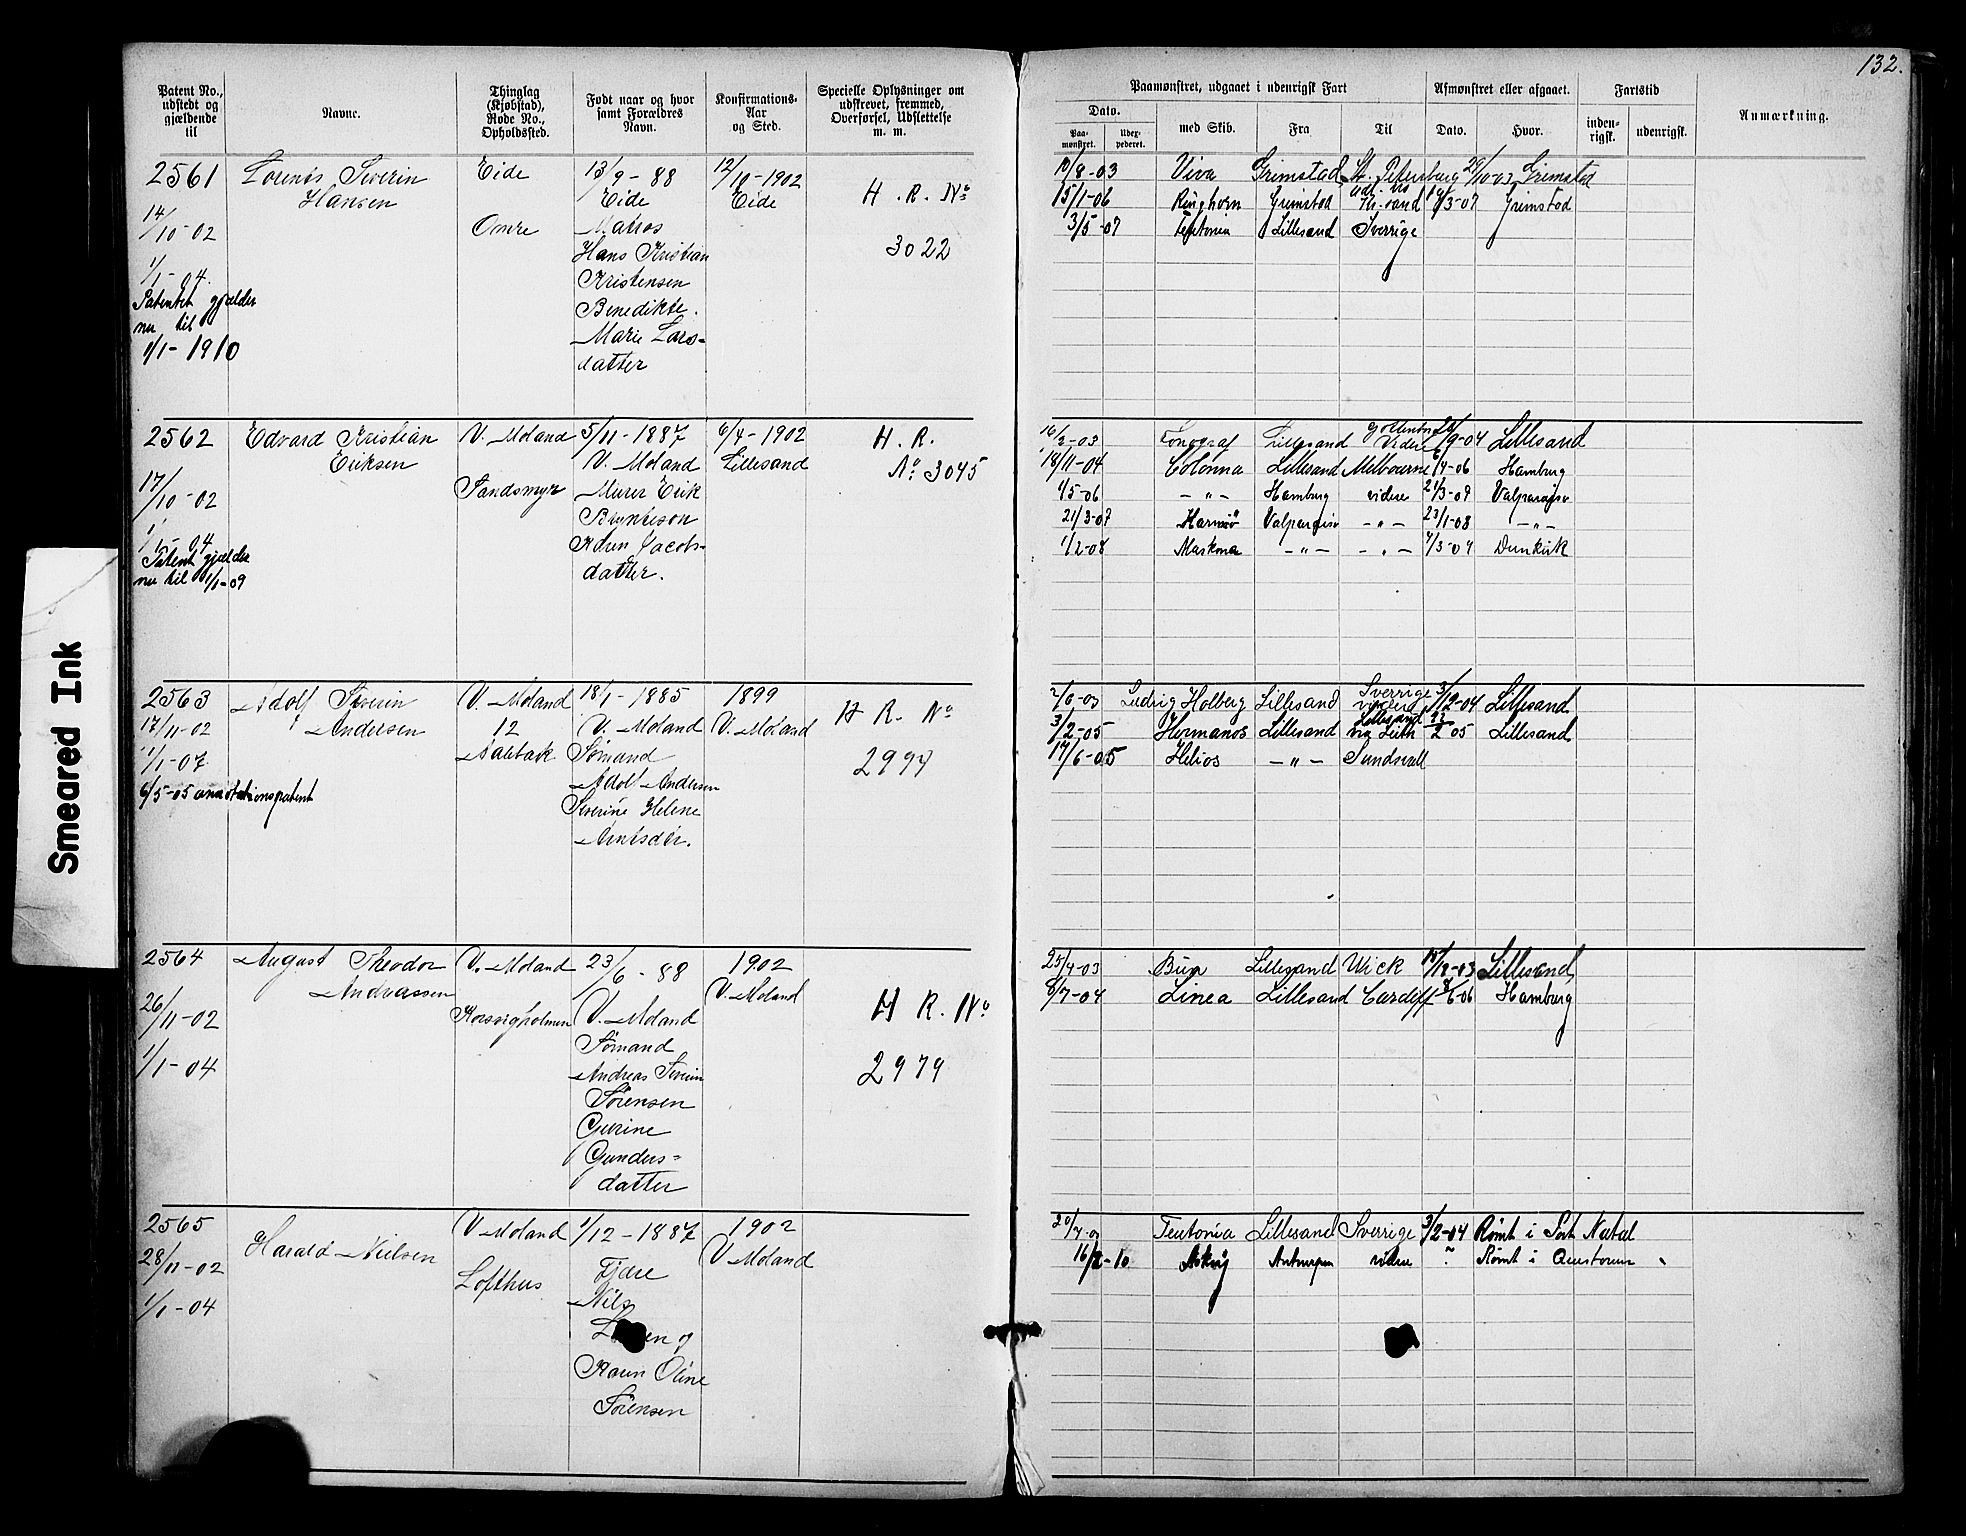 132.
Patent No., udstedt og gjældende til
Navne.
Thinglag (Kjøbstad), Rode No., Opholdssted.
Født naar og hvor samt Forældres Navn.
Konfirmations-Aar og Sted.
Specielle Oplysninger om udskrevet, fremmed, Overførsel, Udslettelse m. m.
Paamønstret, udgaaet i udenrigsk Fart
Afmønstret eller afgaaet.
Fartstid
Anmærkning.
Dato.
Paamønstret.
Udexpederet.
med Skib.
Fra
Til
Dato.
Hvor.
indenrigsk.
udenrigsk.
2561
14/10-02
1/1-04
Patentet gjælder
nu til
1/1-1910
Severin
Hansen
Eide
Omre
13/9-88
Eide
Matros
Hans Kristian
Kristensen
Benedikte
Marie Lars-
datter
12/10-1902
Eide
H. R. No
3022
10/8-03 Viva Grimstad St. Petersburg 29/10-03 Grimstad
15/1-06 Ringhorn Grimstad Grimstad
3/5-07 Teutonia Lillesand Sverrige
2562
17/10-02
1/1-04
Patent gjælder
nu til 1/1-09
Edvard Kristian
Eriksen
V. Moland
Sandsmyr
5/11-1887
V. Moland
Murer Erik
datter.
6/4-1902
Lillesand
H. R.
No 3045
Lillesand Videre Lillesand
18/11-04 Colonna Lillesand Melbourne Hamburg
1/5-06 -"- Hamburg videre Valparaiso
21/3-07 Valparaiso -"- 23/1-08 -"-
-"- -"- Dunkirk
2563
17/11-02
1/1-07
6/5-05 annotationspatent
Adolf Severin
Andersen
V. Moland
12
18/1-1885
V. Moland
Sømand
Adolf Andersen
Severine Helene
1899
V. Moland
H R. No
Ludvig Holberg Lillesand Sverrige Lillesand
3/2-05 Hermanos Lillesand Lillesand via Leith Lillesand
17/6-05 Helios -"- Sundsvall
2564
26/11-02
1/1-04
August Theodor
Andreassen
V. Moland
23/6-88
V. Moland
Sømand
Andreas Severin
Sørensen
Gurine
Gunders-
datter
1902
V. Moland
H R. No
2979
25/4-03 Lillesand Wick Lillesand
8/7-04 Linea Lillesand Cardiff Hamburg
2565
28/11-02
1/1-04
Harald Nielsen
V. Moland
Lofthus
1/12-1887
Nils
og
Karen Oline
Sørensen
1902
V. Moland
Teutonia Lillesand Sverrige 3/2-04 Rømt i Port Natal
Antwerpen videre Rømt i
Smeared Ink